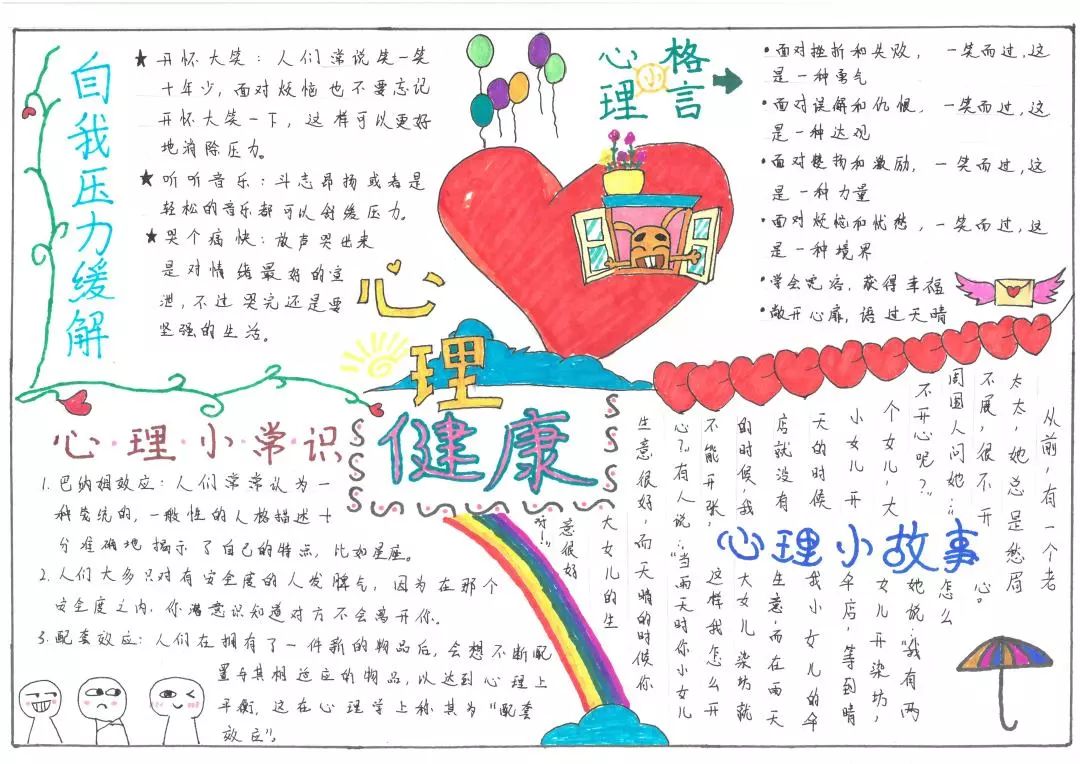 自我压力缓解
★ 开怀大笑：人们常说笑一笑
十年少，面对烦恼也不要忘记
开怀大笑一下，这样可以更好
地消除压力。
★ 听听音乐：斗志昂扬或者是
轻松的音乐都可以舒缓压力。
★ 哭个痛快：放声哭出来
是对情绪最好的宣
泄，不过哭完还是要
坚强的生活。
心理小格言
•面对挫折和失败，一笑而过，这
是一种勇气
•面对误解和仇恨，一笑而过，这
是一种达观
•面对赞扬和激励，一笑而过，这
是一种力量
•面对烦恼和忧愁，一笑而过，这
是一种境界
•学会宽容，获得幸福
•敞开心扉，语过天晴
心理健康
心理小常识
1. 巴纳姆效应：人们常常认为一
种笼统的，一般性的人格描述十
分准确地揭示了自己的特点，比如星座。
2. 人们大多只对有安全度的人发脾气，因为在那个
安全度之内，你潜意识知道对方不会离开你。
3. 配套效应：人们在拥有了一件新的物品后，会想不断配
置与其相适应的物品，以达到心理上
平衡，这在心理学上称其为“配套
效应”。
心理小故事
从前，有一个老
太太，她总是愁眉
不展，很不开心。
周围人问她：“怎么
不开心呢？”她说：“我有两
个女儿，大女儿开染坊，
小女儿开伞店，等到晴
天的时候我小女儿的伞
店就没有生意，而在雨天
的时候，我大女儿染坊就
不能开张，这样我怎么开
心？”有人说：“当雨天时你小女儿
生意很好，而天晴的时候你
大女儿的生
意很好